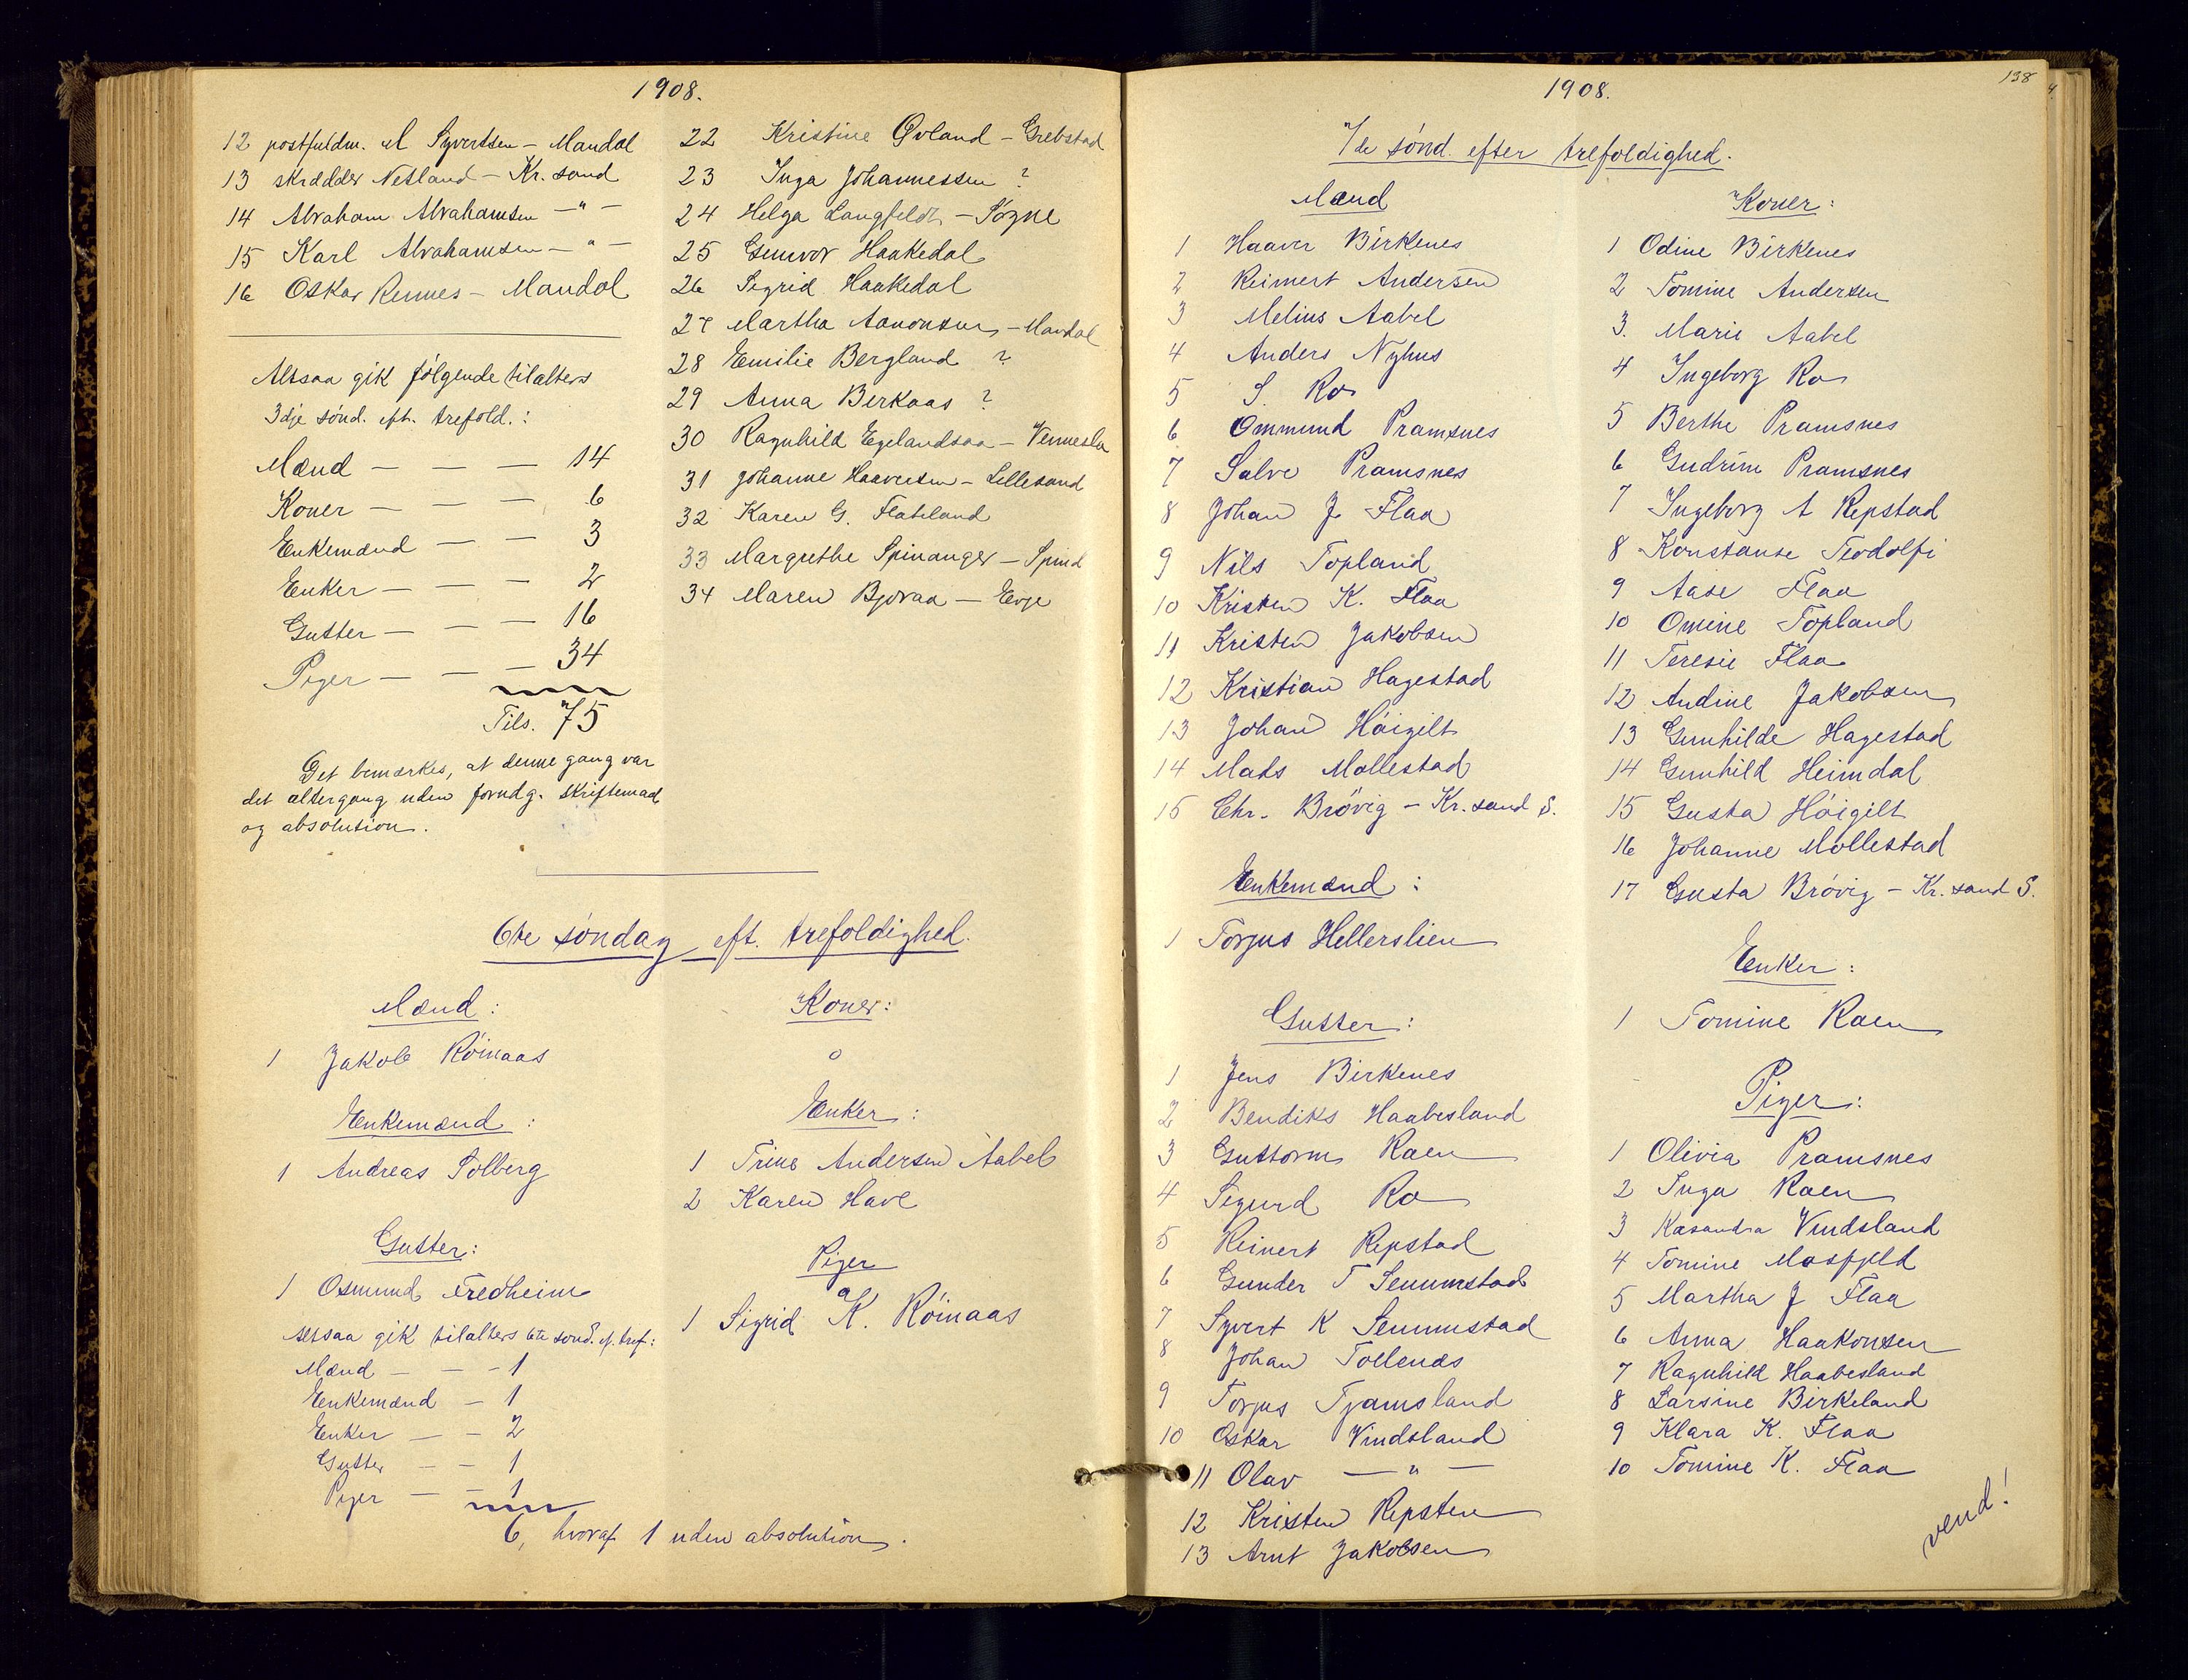 1908.
12 postfuldm. M Syvertsen – Mandal
13 skrædder Netland – Kr. sand
14 Abraham Abrahamsen – " –
15 Karl Abrahamsen – " –
16 Oskar Rennes – Mandal
Altsaa gik følgende tilalters
3dje sønd. eft. trefold.:
Mænd — — — 14
Koner — — — 6
Enkemænd — — 3
Enker — — — 2
Gutter — — — 16
Piger — — — 34
Tils. 75
Det bemærkes, at denne gang var
det altergang uden forudg. skriftemaal
og absolution.
22 Kristine Øvland – Grebstad
23 Inga Johannessen ?
24 Helga Langfeldt – Søgne
25 Gunvor Haakedal
26 Sigrid Haakedal
27 Martha Aanonsen – Mandal
28 Emilie Bergland ?
29 Anna Berkaas ?
30 Ragnhild Egelandsaa – Vennesla
31 Johanne Haaversen – Lillesand
32 Karen G. Flateland
33 Margrethe Spinanger – Spind
34 Maren Bjoraa – Evje
6te søndag eft. trefoldighed.
Mænd:
1 Jakob Røinaas
Enkemænd:
1 Andreas Solberg
Gutter:
1 Osmund Fredheim
Altsaa gik tilalters 6te sønd. ef. tref:
Mænd — — — 1
Enkemænd — 1
Enker — — 2
Gutter — — 1
Piger — — 1
6, hvoraf 1 uden absolution.
Koner:
0
Enker:
1 Trine Andersen Aabel
2 Karen Have
Piger
1 Sigrid K. Røinaas
138
1908.
7de sønd. efter trefoldighed.
Mænd
1 Haaver Birkenes
2 Reimert Andersen
3 Melius Aabel
4 Anders Nyhus
5 S. Ro
6 Ommund Pramsnes
7 Salve Pramsnes
8 Johan J Flaa
9 Nils Topland
10 Kristen K. Flaa
11 Kristen Jakobsen
12 Kristian Hagestad
13 Johan Høigilt
14 Mads Mollestad
15 Chr. Brøvig – Kr. sand S.
Enkemænd:
1 Torjus Hellerslien
Gutter:
1 Jens Birkenes
2 Bendiks Haabesland
3 Guttorm Raen
4 Sigurd Ro
5 Reinert Repstad
6 Gunder T Senumstad
7 Syvert K Senumstad
8 Johan Tollenæs
9 Torjus Tjamsland
10 Oskar Vindsland
11 Olav — " —
12 Kristen Repsten
13 Arnt Jakobsen
Koner:
1 Odine Birkenes
2 Tomine Andersen
3. Marie Aabel
4 Ingeborg Ro
5 Berthe Pramsnes
6 Gudrine Pramsnes
7 Ingeborg A Repstad
8 Konstanse Teodolfi
9 Aase Flaa
10 Omine Topland
11 Teresie Flaa
12 Andine Jakobsen
13 Gunhilde Hagestad
14 Gunhild Heimdal
15 Gusta Høigilt
16 Johanne Mollestad
17 Gusta Brøvig – Kr. sand S.
Enker:
1 Tomine Raen
Piger:
1 Olivia Pramsnes
2 Inga Raen
3 Kasandra Vindsland
4 Tomine Mosfjeld
5 Martha J Flaa
6 Anna Haakonsen
7 Ragnhild Haabesland
8 Larsine Birkeland
9 Klara K. Flaa
10 Tomine K. Flaa
vend!